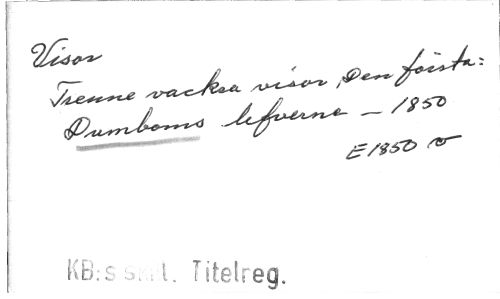 Visor
Trenne vackra visor, Den första:
Dumboms lefverne – 1850
E 1850 v
KB:s saml. Titelreg.